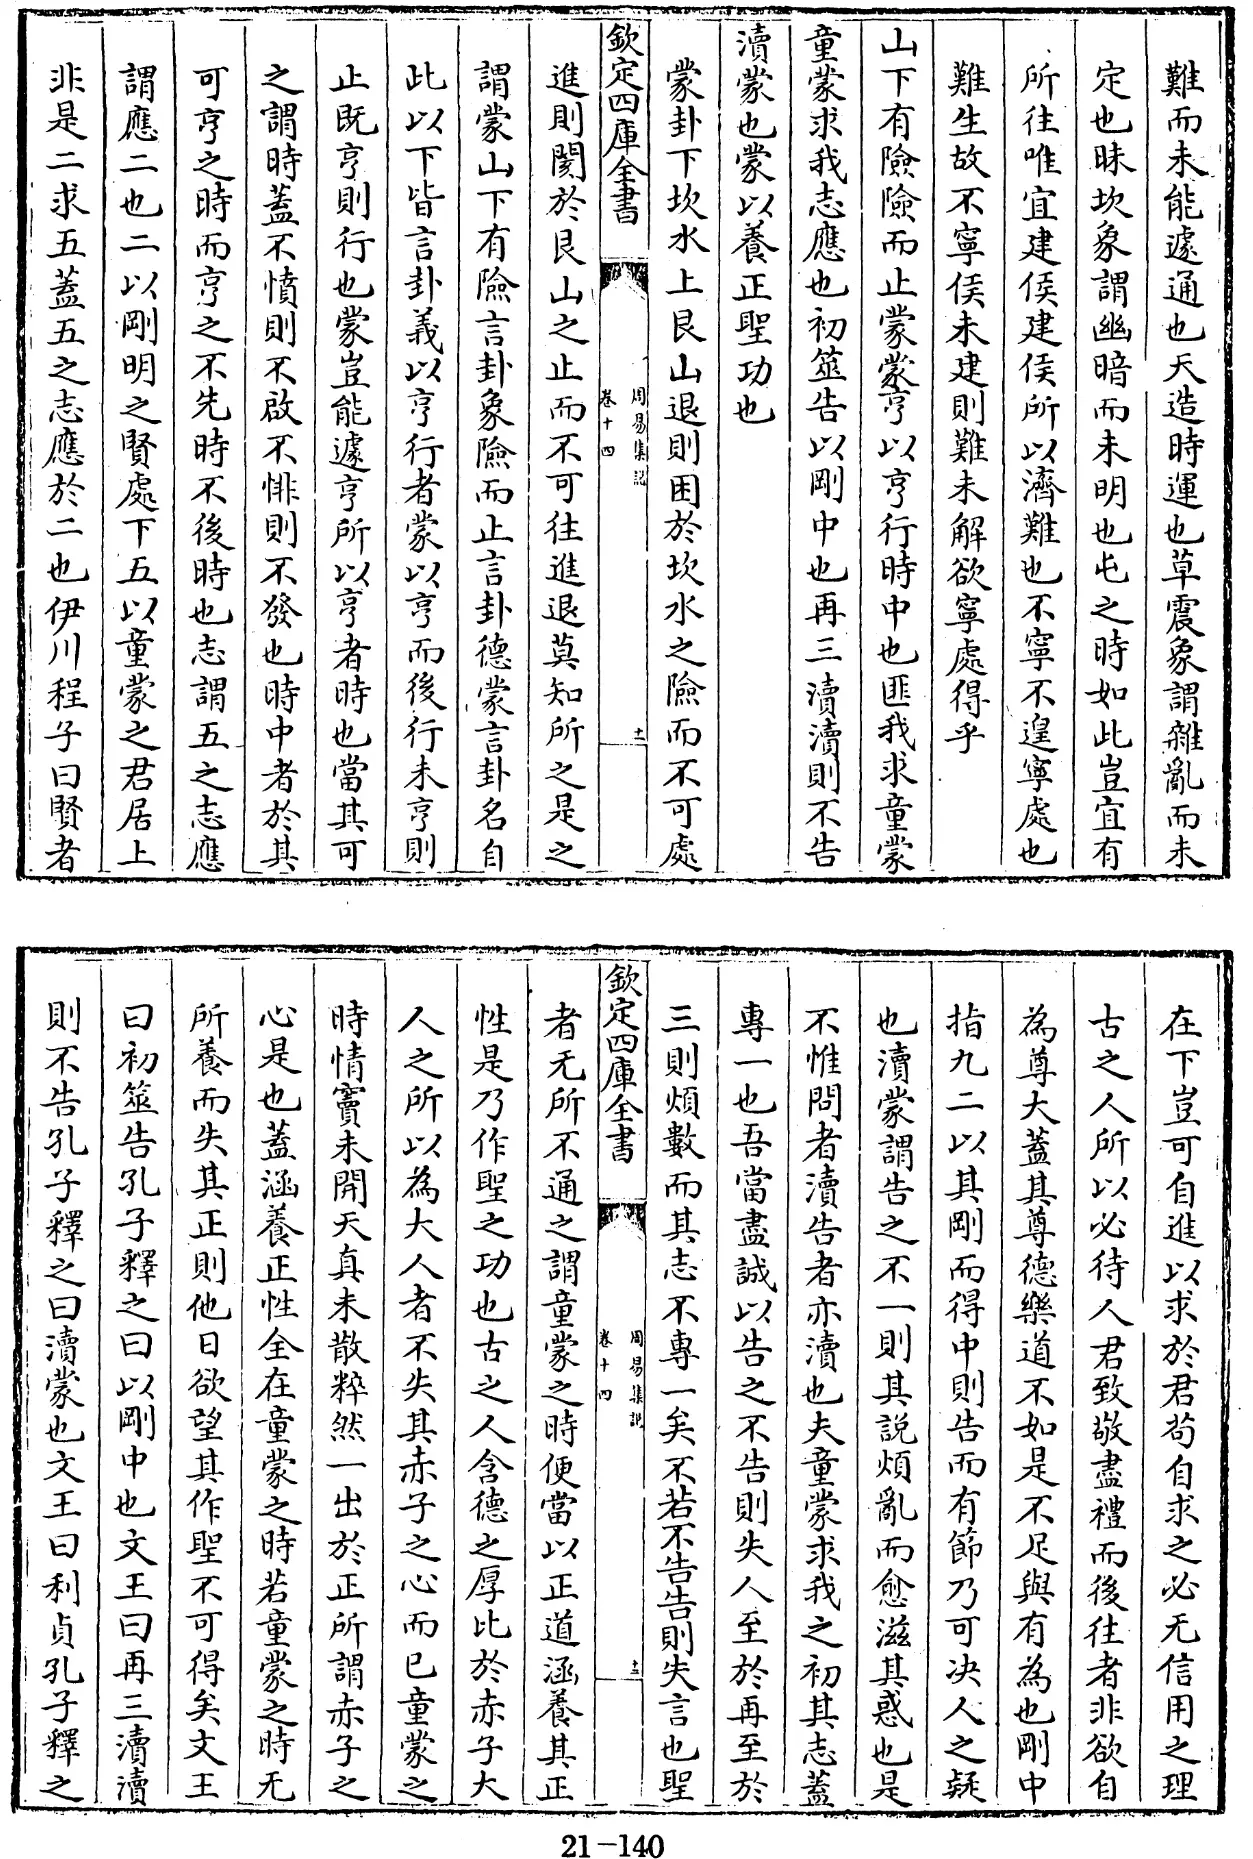 難而未能遽通也天造時運也草震象謂雜亂而未
定也昧坎象謂幽暗而未明也屯之時如此豈宜有
所往唯宜建侯建侯所以濟難也不寧不遑寧處也
難生故不寧侯未建則難未解欲寧處得乎
山下有險險而止蒙蒙亨以亨行時中也匪我求童蒙
童蒙求我志應也初筮告以剛中也再三瀆瀆則不告
瀆蒙也蒙以養正聖功也
蒙卦下坎水上艮山退則困於坎水之險而不可處
欽定四庫全書
周易集說
卷十四
十一
進則閡於艮山之止而不可往進退莫知所之是之
謂蒙山下有險言卦象險而止言卦德蒙言卦名自
此以下皆言卦義以亨行者蒙以亨而後行未亨則
止既亨則行也蒙豈能遽亨所以亨者時也當其可
之謂時蓋不憤則不啟不悱則不發也時中者於其
可亨之時而亨之不先時不後時也志謂五之志應
謂應二也二以剛明之賢處下五以童蒙之君居上
非是二求五蓋五之志應於二也伊川程子曰賢者
在下豈可自進以求於君苟自求之必无信用之理
古之人所以必待人君致敬盡禮而後往者非欲自
為尊大蓋其尊德樂道不如是不足與有為也剛中
指九二以其剛而得中則告而有節乃可決人之疑
也瀆蒙謂告之不一則其說煩亂而愈滋其惑也是
不惟問者瀆告者亦瀆也夫童蒙求我之初其志蓋
專一也吾當盡誠以告之不告則失人至於再至於
三則煩數而其志不專一矣不若不告告則失言也聖
欽定四庫全書
周易集說
卷十四
十二
者无所不通之謂童蒙之時便當以正道涵養其正
性是乃作聖之功也古之人含德之厚比於赤子大
人之所以為大人者不失其赤子之心而已童蒙之
時情竇未開天真未散粹然一出於正所謂赤子之
心是也蓋涵養正性全在童蒙之時若童蒙之時无
所養而失其正則他日欲望其作聖不可得矣文王
曰初筮告孔子釋之曰以剛中也文王曰再三瀆瀆
則不告孔子釋之曰瀆蒙也文王曰利貞孔子釋之
21-140